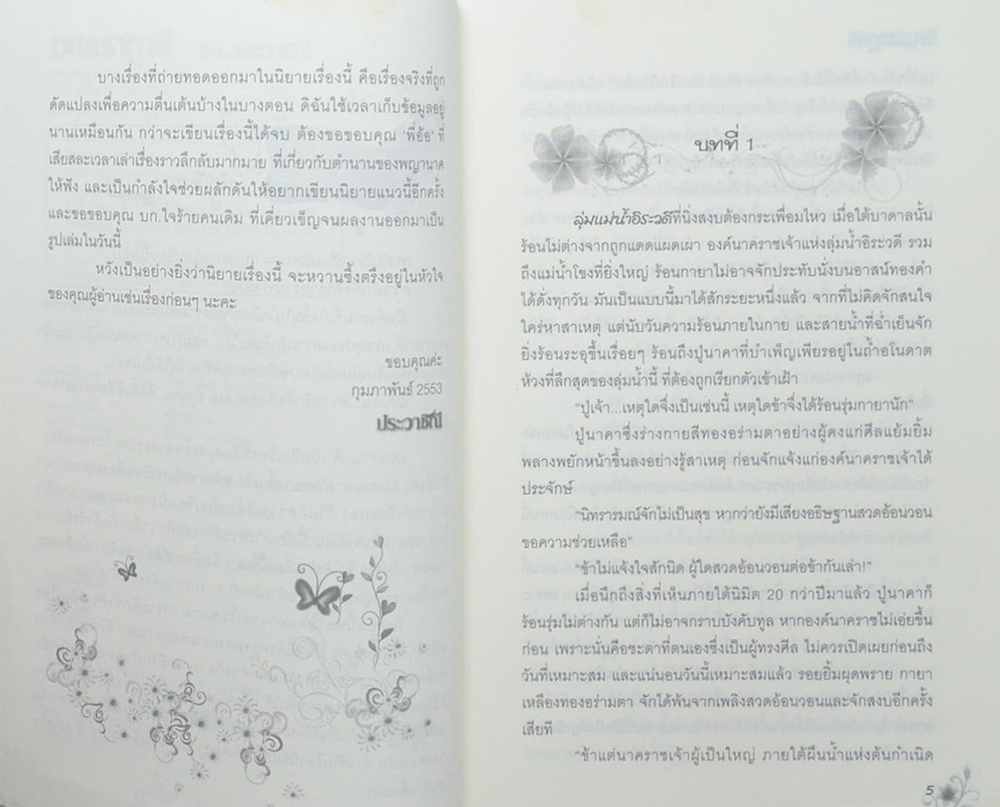 บางเรื่องที่ถ่ายทอดออกมาในนิยายเรื่องนี้ คือเรื่องจริงที่ถูก
ดัดแปลงเพื่อความตื่นเต้นบ้างในบางตอน ดิฉันใช้เวลาเก็บข้อมูลอยู่
นานเหมือนกัน กว่าจะเขียนเรื่องนี้ได้จบ ต้องขอขอบคุณ ‘พี่อ้อ’ ที่
เสียสละเวลาเล่าเรื่องราวลึกลับมากมาย ที่เกี่ยวกับตำนานของพญานาค
ให้ฟัง และเป็นกำลังใจช่วยผลักดันให้อยากเขียนนิยายแนวนี้อีกครั้ง
และขอขอบคุณ บก.ใจร้ายคนเดิม ที่เคี่ยวเข็ญจนผลงานออกมาเป็น
รูปเล่มในวันนี้
หวังเป็นอย่างยิ่งว่านิยายเรื่องนี้ จะหวานซึ้งตรึงอยู่ในหัวใจ
ของคุณผู้อ่านเช่นเรื่องก่อนๆ นะคะ
ขอบคุณค่ะ
กุมภาพันธ์ 2553
ประวาชิณี
บทที่ 1
ลุ่มแม่น้ำอิระวดีที่นิ่งสงบต้องกระเพื่อมไหว เมื่อใต้บาดาลนั้น
ร้อนไม่ต่างจากถูกแดดแผดเผา องค์นาคราชเจ้าแห่งลุ่มน้ำอิระวดี รวม
ถึงแม่น้ำโขงที่ยิ่งใหญ่ ร้อนกายาไม่อาจจักประทับนั่งบนอาสน์ทองคำ
ได้ดั่งทุกวัน มันเป็นแบบนี้มาได้สักระยะหนึ่งแล้ว จากที่ไม่คิดจักสนใจ
ใคร่หาสาเหตุ แต่นับวันความร้อนภายในกาย และสายน้ำที่ฉ่ำเย็นจัก
ยิ่งร้อนระอุขึ้นเรื่อยๆ ร้อนถึงปู่นาคาที่บำเพ็ญเพียรอยู่ในถ้ำอโนดาต
ห้วงที่ลึกสุดของลุ่มน้ำนี้ ที่ต้องถูกเรียกตัวเข้าเฝ้า
“ปู่เจ้า...เหตุใดจึ่งเป็นเช่นนี้ เหตุใดข้าจึ่งได้ร้อนรุ่มกายานัก”
ปู่นาคาซึ่งร่างกายสีทองอร่ามตาอย่างผู้คงแก่ศีลแย้มยิ้ม
พลางพยักหน้าขึ้นลงอย่างรู้สาเหตุ ก่อนจักแจ้งแก่องค์นาคราชเจ้าได้
ประจักษ์
“นิทรารมณ์จักไม่เป็นสุข หากว่ายังมีเสียงอธิษฐานสวดอ้อนวอน
ขอความช่วยเหลือ”
“ข้าไม่แจ้งใจสักนิด ผู้ใดสวดอ้อนวอนต่อข้ากันเล่า!”
เมื่อนึกถึงสิ่งที่เห็นภายใต้นิมิต 20 กว่าปีมาแล้ว ปู่นาคาก็
ร้อนรุ่มไม่ต่างกัน แต่ก็ไม่อาจกราบบังคับทูล หากองค์นาคราชไม่เอ่ยขึ้น
ก่อน เพราะนั่นคือชะตาที่ตนเองซึ่งเป็นผู้ทรงศีล ไม่ควรเปิดเผยก่อนถึง
วันที่เหมาะสม และแน่นอนวันนี้เหมาะสมแล้ว รอยยิ้มผุดพราย กายา
เหลืองทองอร่ามตา จักได้พ้นจากเพลิงสวดอ้อนวอนและจักสงบอีกครั้ง
เสียที
“ข้าแต่นาคราชเจ้าผู้เป็นใหญ่ ภายใต้ผืนน้ำแห่งต้นกำเนิด
5